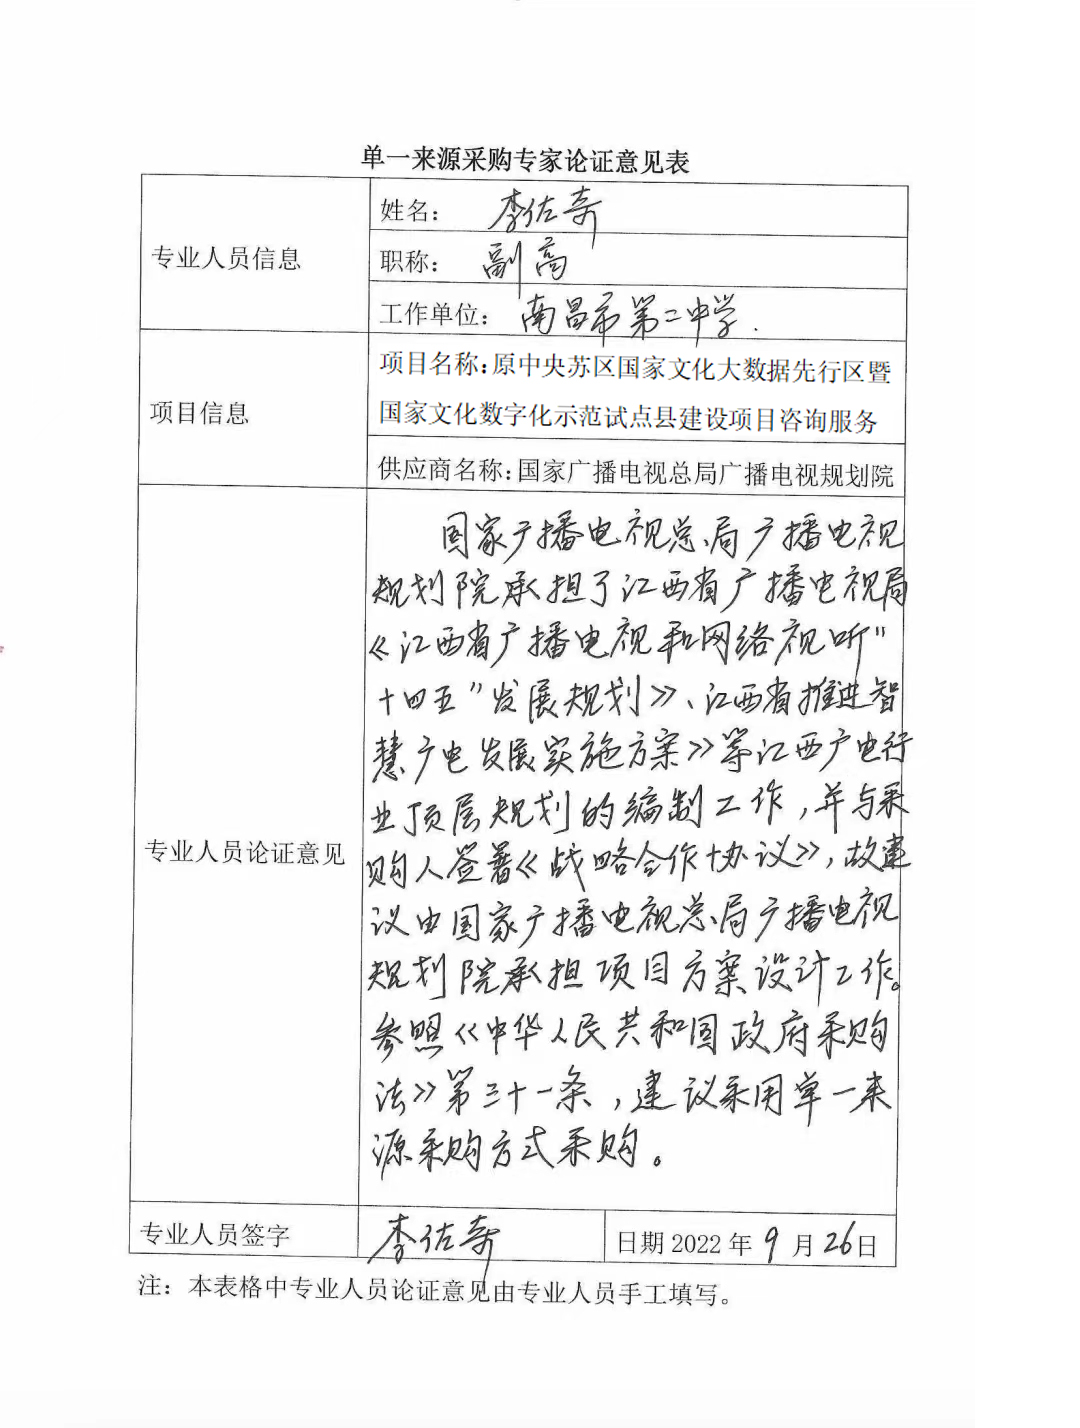 单一来源采购专家论证意见表
专业人员信息
姓名： 李佐奇
职称： 副高
工作单位： 南昌市第二中学.
项目信息
项目名称:原中央苏区国家文化大数据先行区暨
国家文化数字化示范试点县建设项目咨询服务
供应商名称:国家广播电视总局广播电视规划院
专业人员论证意见
国家广播电视总局广播电视
规划院承担了江西省广播电视局
《江西省广播电视和网络视听"
十四五"发展规划》、江西省推进智
慧广电发展实施方案》等江西广电行
业顶层规划的编制工作,并与采
购人签署《战略合作协议》,故建
议由国家广播电视总局广播电视
规划院承担项目方案设计工作。
参照《中华人民共和国政府采购
法》第三十一条,建议采用单一来
源采购方式采购。
专业人员签字 李佐奇 日期 2022 年 9 月 26日
注：本表格中专业人员论证意见由专业人员手工填写。